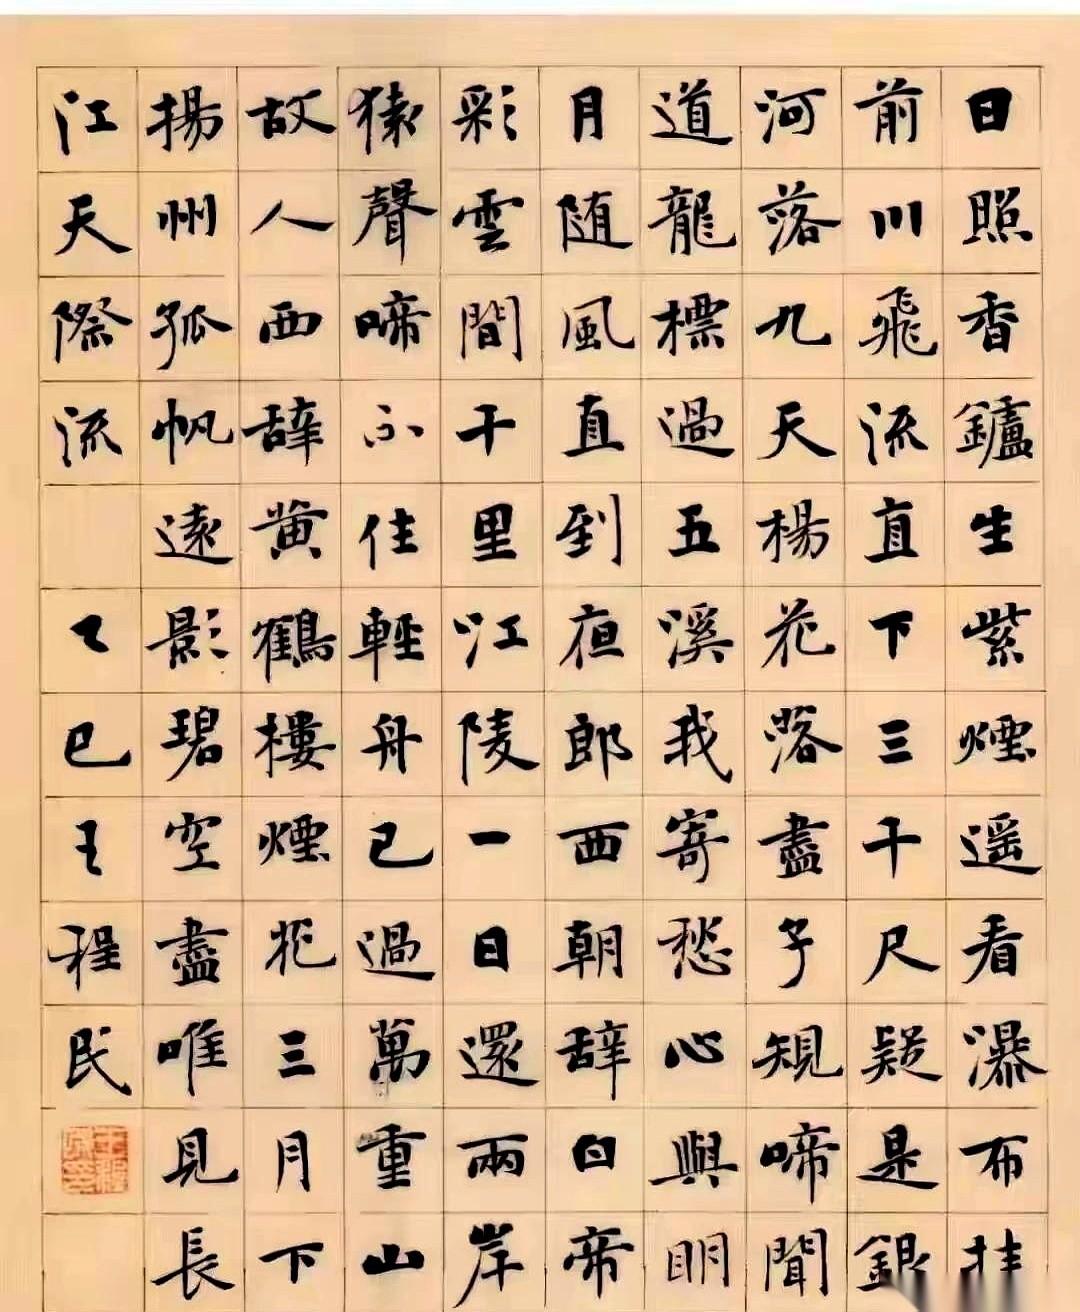 日照香鑪生紫煙遥看瀑布挂
前川飛流直下三千尺疑是銀
河落九天楊花落盡子規啼聞
道龍標過五溪我寄愁心與明
月随風直到夜郎西朝辞白帝
彩雲間千里江陵一日還兩岸
猿聲啼不住輕舟已過萬重山
故人西辞黄鶴樓煙花三月下
揚州孤帆遠影碧空盡唯見長
江天際流 乙巳王程民